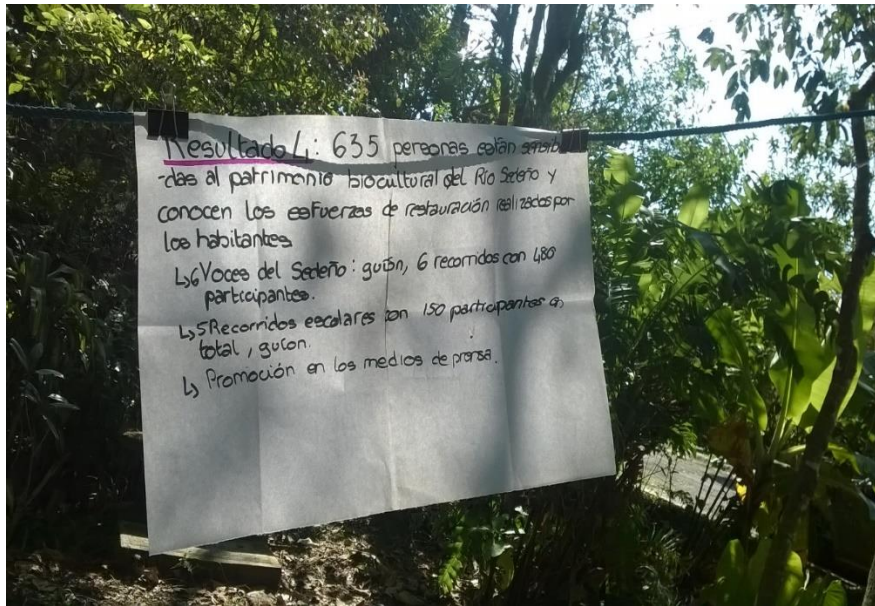 Resultado 4: 635 personas están sensibi
-das al patrimonio biocultural del Río Sedeño y
conocen los esfuerzos de restauración realizados por
los habitantes
↳ 6 Voces del Sedeño: guión, 6 recorridos con 480
participantes.
↳ 5 Recorridos escolares con 150 participantes en
total, guion.
↳ Promoción en los medios de prensa.